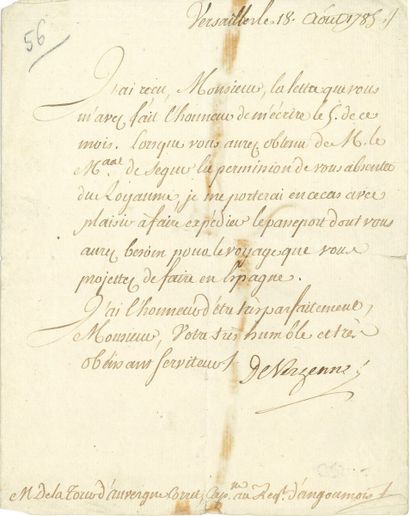 Versailles le 18. Août 1785.
56
J'ai reçu, Monsieur, la lettre que vous
m'avez fait l'honneur de m'écrire le 5. de ce
mois. Lorsque vous aurez obtenu de M. le
M.aal de Segur la permission de vous absenter
du Royaume, je me porterai en ce cas avec
plaisir à faire expédier le passeport dont vous
aurez besoin pour le voyage que vous
projettez de faire en Espagne.
J'ai l'honneur d'être très parfaitement,
Monsieur, Votre très humble et très
obéissant serviteur
De Vergennes
M. De la Tour d'auvergne Corret, Cap.ne au Reg.t d'angoumois